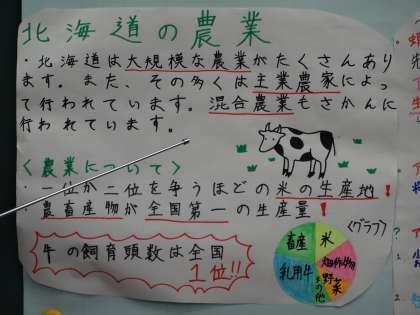 北海道の農業
・北海道は大規模な農業がたくさんあり
ます。また、その多くは主業農家によっ
て行われています。混合農業もさかんに
行われています。
<農業について>
・一位か二位を争うほどの米の生産地！
・農畜産物が全国第一の生産量！
<グラフ>
牛の飼育頭数は全国
1位!!
畜産
米
乳用牛
畑作物
野菜
その他